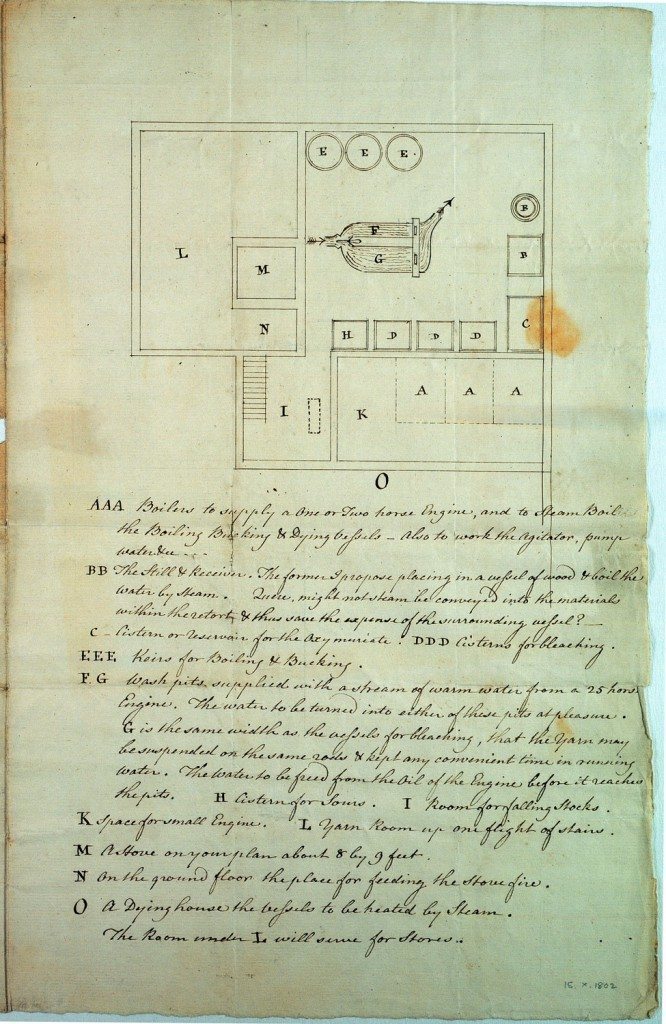 E E E
B
F
L
G
B
M
C
N
H D D D
A A A
I K
O
AAA Boilers to supply a One or Two horse Engine, and to Steam Boil
the Boiling Bucking & Dying Vessels – Also to work the Agitator, pump
water &c - - -
BB The Still & Receiver. The former I propose placing in a vessel of wood & boil the
water by Steam. Quere, might not steam be conveyed into the materials
within the retort, & thus save the expense of the surrounding vessel? –
C – Cistern or reservoir for the Oxymuriate. DDD Cisterns for bleaching.
EEE Keirs for Boiling & Bucking.
F.G Wash pits supplied with a stream of warm water from a 25 hors
Engine. The water to be turned into either of these pits at pleasure.
G is the same width as the vessels for bleaching, that the Yarn may
be suspended on the same rods & kept any convenient time in running
water. The Water to be freed from the Oil of the Engine before it reaches
the pits. H Cistern for Sours. I Room for falling Stocks.
K Space for small Engine. L Yarn Room up one flight of stairs.
M A Stove on your plan about 8 by 9 feet.
N On the ground floor the place for feeding the Stove fire.
O A Dying house the vessels to be heated by Steam.
The Room under L will serve for Stores..
15. x. 1802